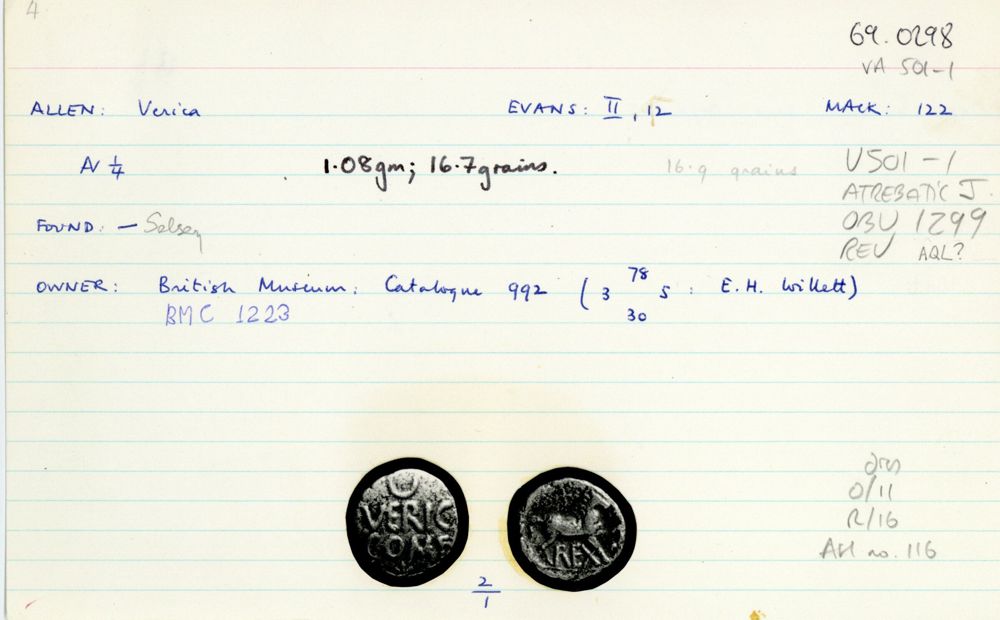 4
69.0298
VA 501-1
ALLEN: Verica EVANS: II, 12 MACK: 122
AV 1/4 1.08gm; 16.7grains. 16.9 grains V501-1
ATREBATIC J.
FOUND: — Selsey OBV 1299
REV AQL?
OWNER: British Museum: Catalogue 992 (3 78/30 5: E.H. Willett)
BMC 1223
VERIC
COMF
REX
2/1
O/11
R/16
no. 116